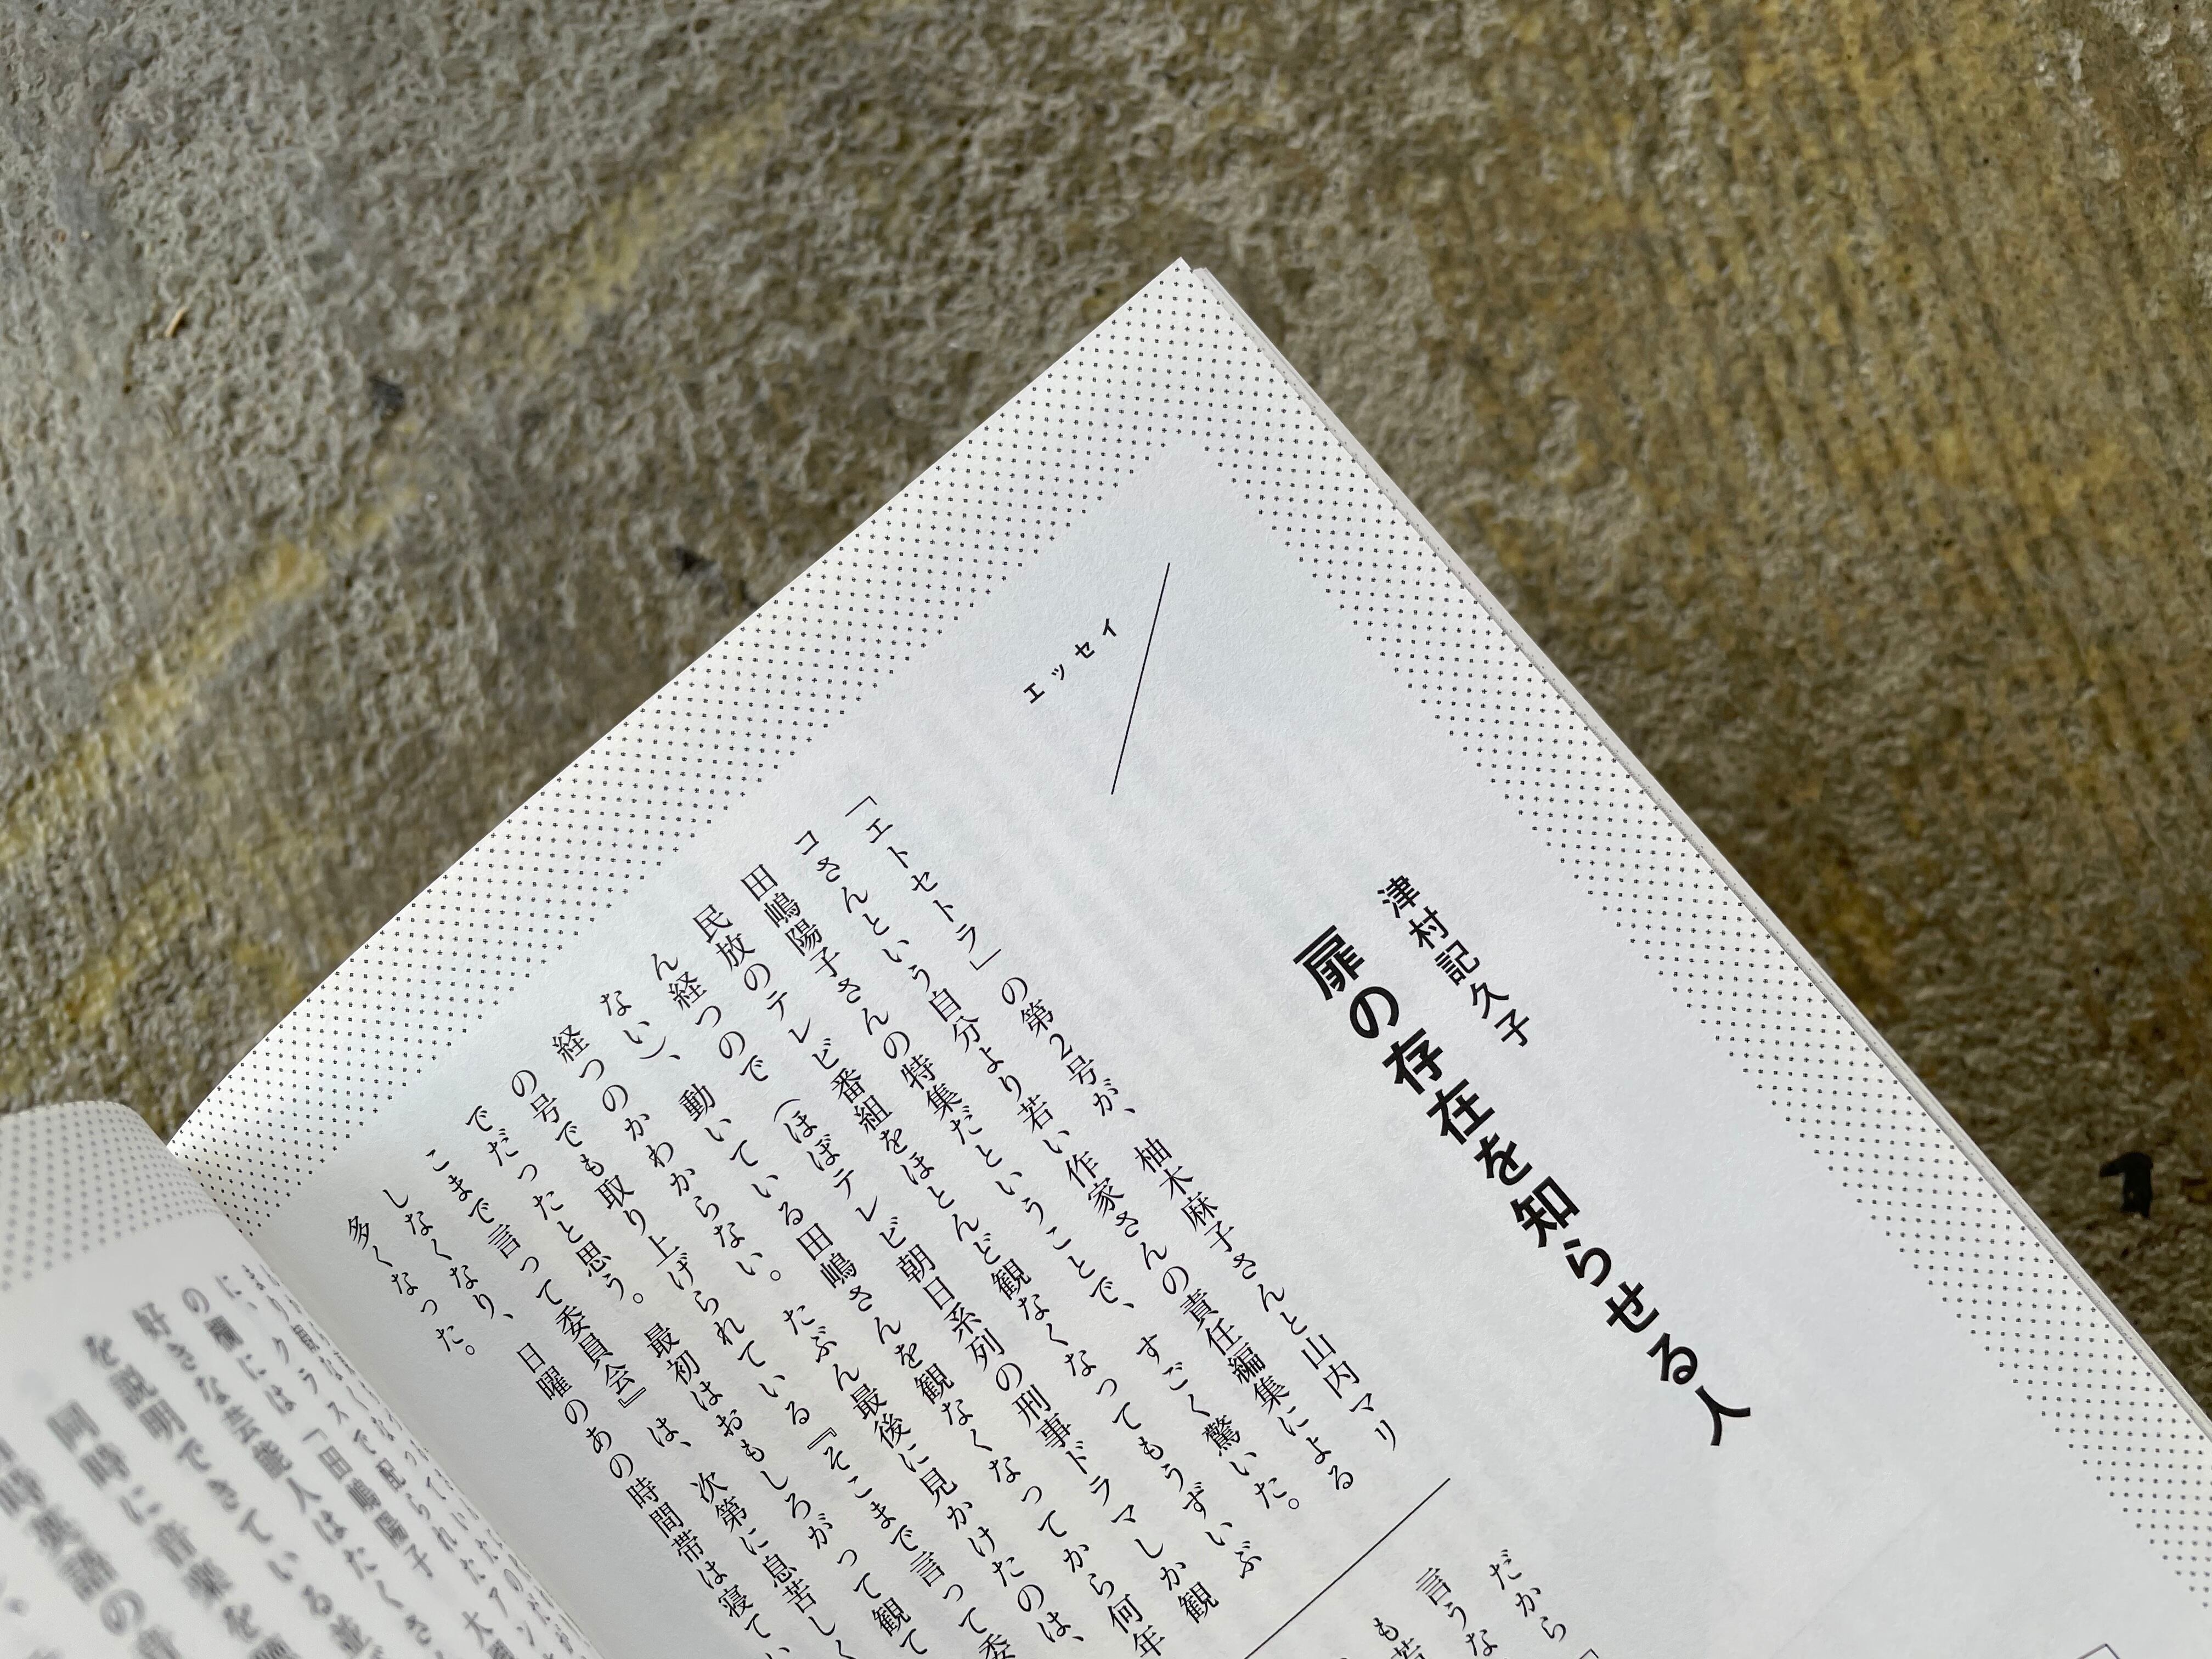 エッセイ
津村記久子
扉の存在を知らせる人
「エトセトラ」の第2号が、柚木麻子さんと山内マリ
コさんという自分より若い作家さんの責任編集による
田嶋陽子さんの特集だということで、すごく驚いた。
民放のテレビ番組をほとんど観なくなってもうずいぶ
ん経つので（ほぼテレビ朝日系列の刑事ドラマしか観
ない）、動いている田嶋さんを観なくなってから何年
経つのかわからない。たぶん最後に見かけたのは、
の号でも取り上げられている『そこまで言って委
でだったと思う。最初はおもしろがって観て
こまで言って委員会』は、次第に息苦しく
しなくなり、日曜のあの時間帯は寝てい
多くなった。
だから
言うな
も若
に、クラスで配られたアン
の欄には「田嶋陽子
好きな芸能人はたくさ
を説明できている
同時に音楽を
時英語の